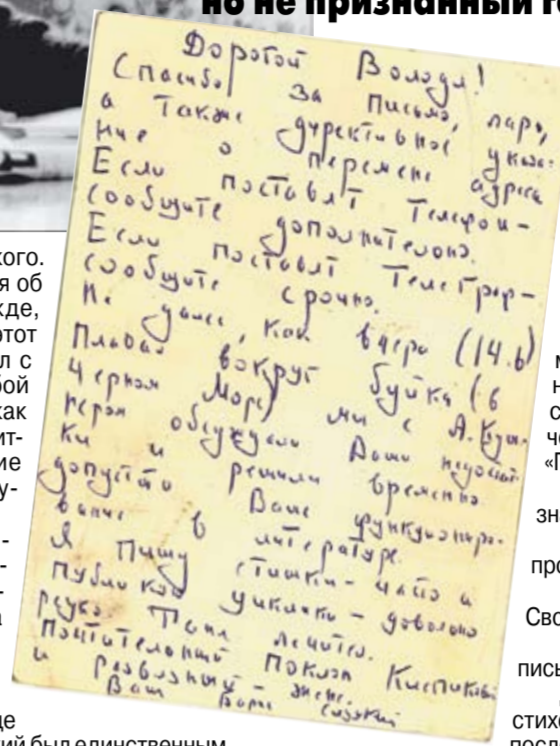 но не признанный г
Дорогой Володя!
Спасибо за письмо,
а также директивное указа-
ние о перемене адреса
Если поставят Телефон-
сообщите дополнительно.
Если поставят Телеграф-
сообщите срочно.
Не далее, как вчера (14.6)
Плавая вокруг буйка (в
Черном Море) мы с А. Куш-
нером обсуждали Ваши недостат-
ки и решили временно
допустить Ваше функциониро-
вание в литературе.
Я Пишу стишки - часто и
публикую - довольно
редко. Таня лечится.
Почтительный поклон
и развязный жене.
Ваш Боря
кого.
я об
жде,
этот
л с
бой
как
ит-
ие
у-
-
-
-
а
де
ий был единственным
м
н
с
че
«П
зна
про
Сво
пись
стихо
посл